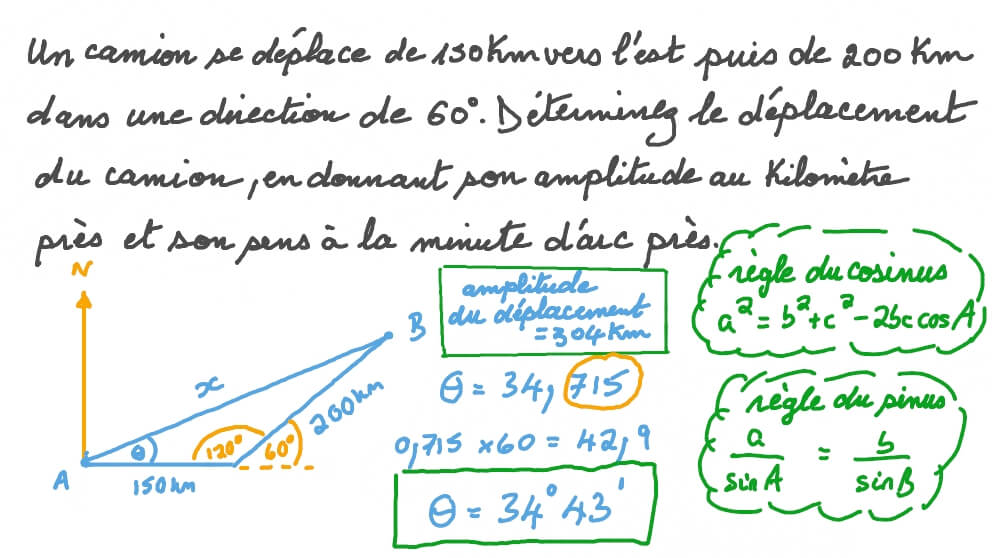 Un camion se déplace de 150 Km vers l'est puis de 200 Km
dans une direction de 60°. Déterminez le déplacement
du camion, en donnant son amplitude au Kilomètre
près et son sens à la minute d'arc près.
N
A
B
x
θ
120°
60°
150 km
200 km
amplitude
du déplacement
= 304 Km
θ = 34,715
0,715 × 60 = 42,9
θ = 34° 43'
règle du cosinus
a² = b² + c² - 2bc cos A
règle du sinus
a/sin A = b/sin B